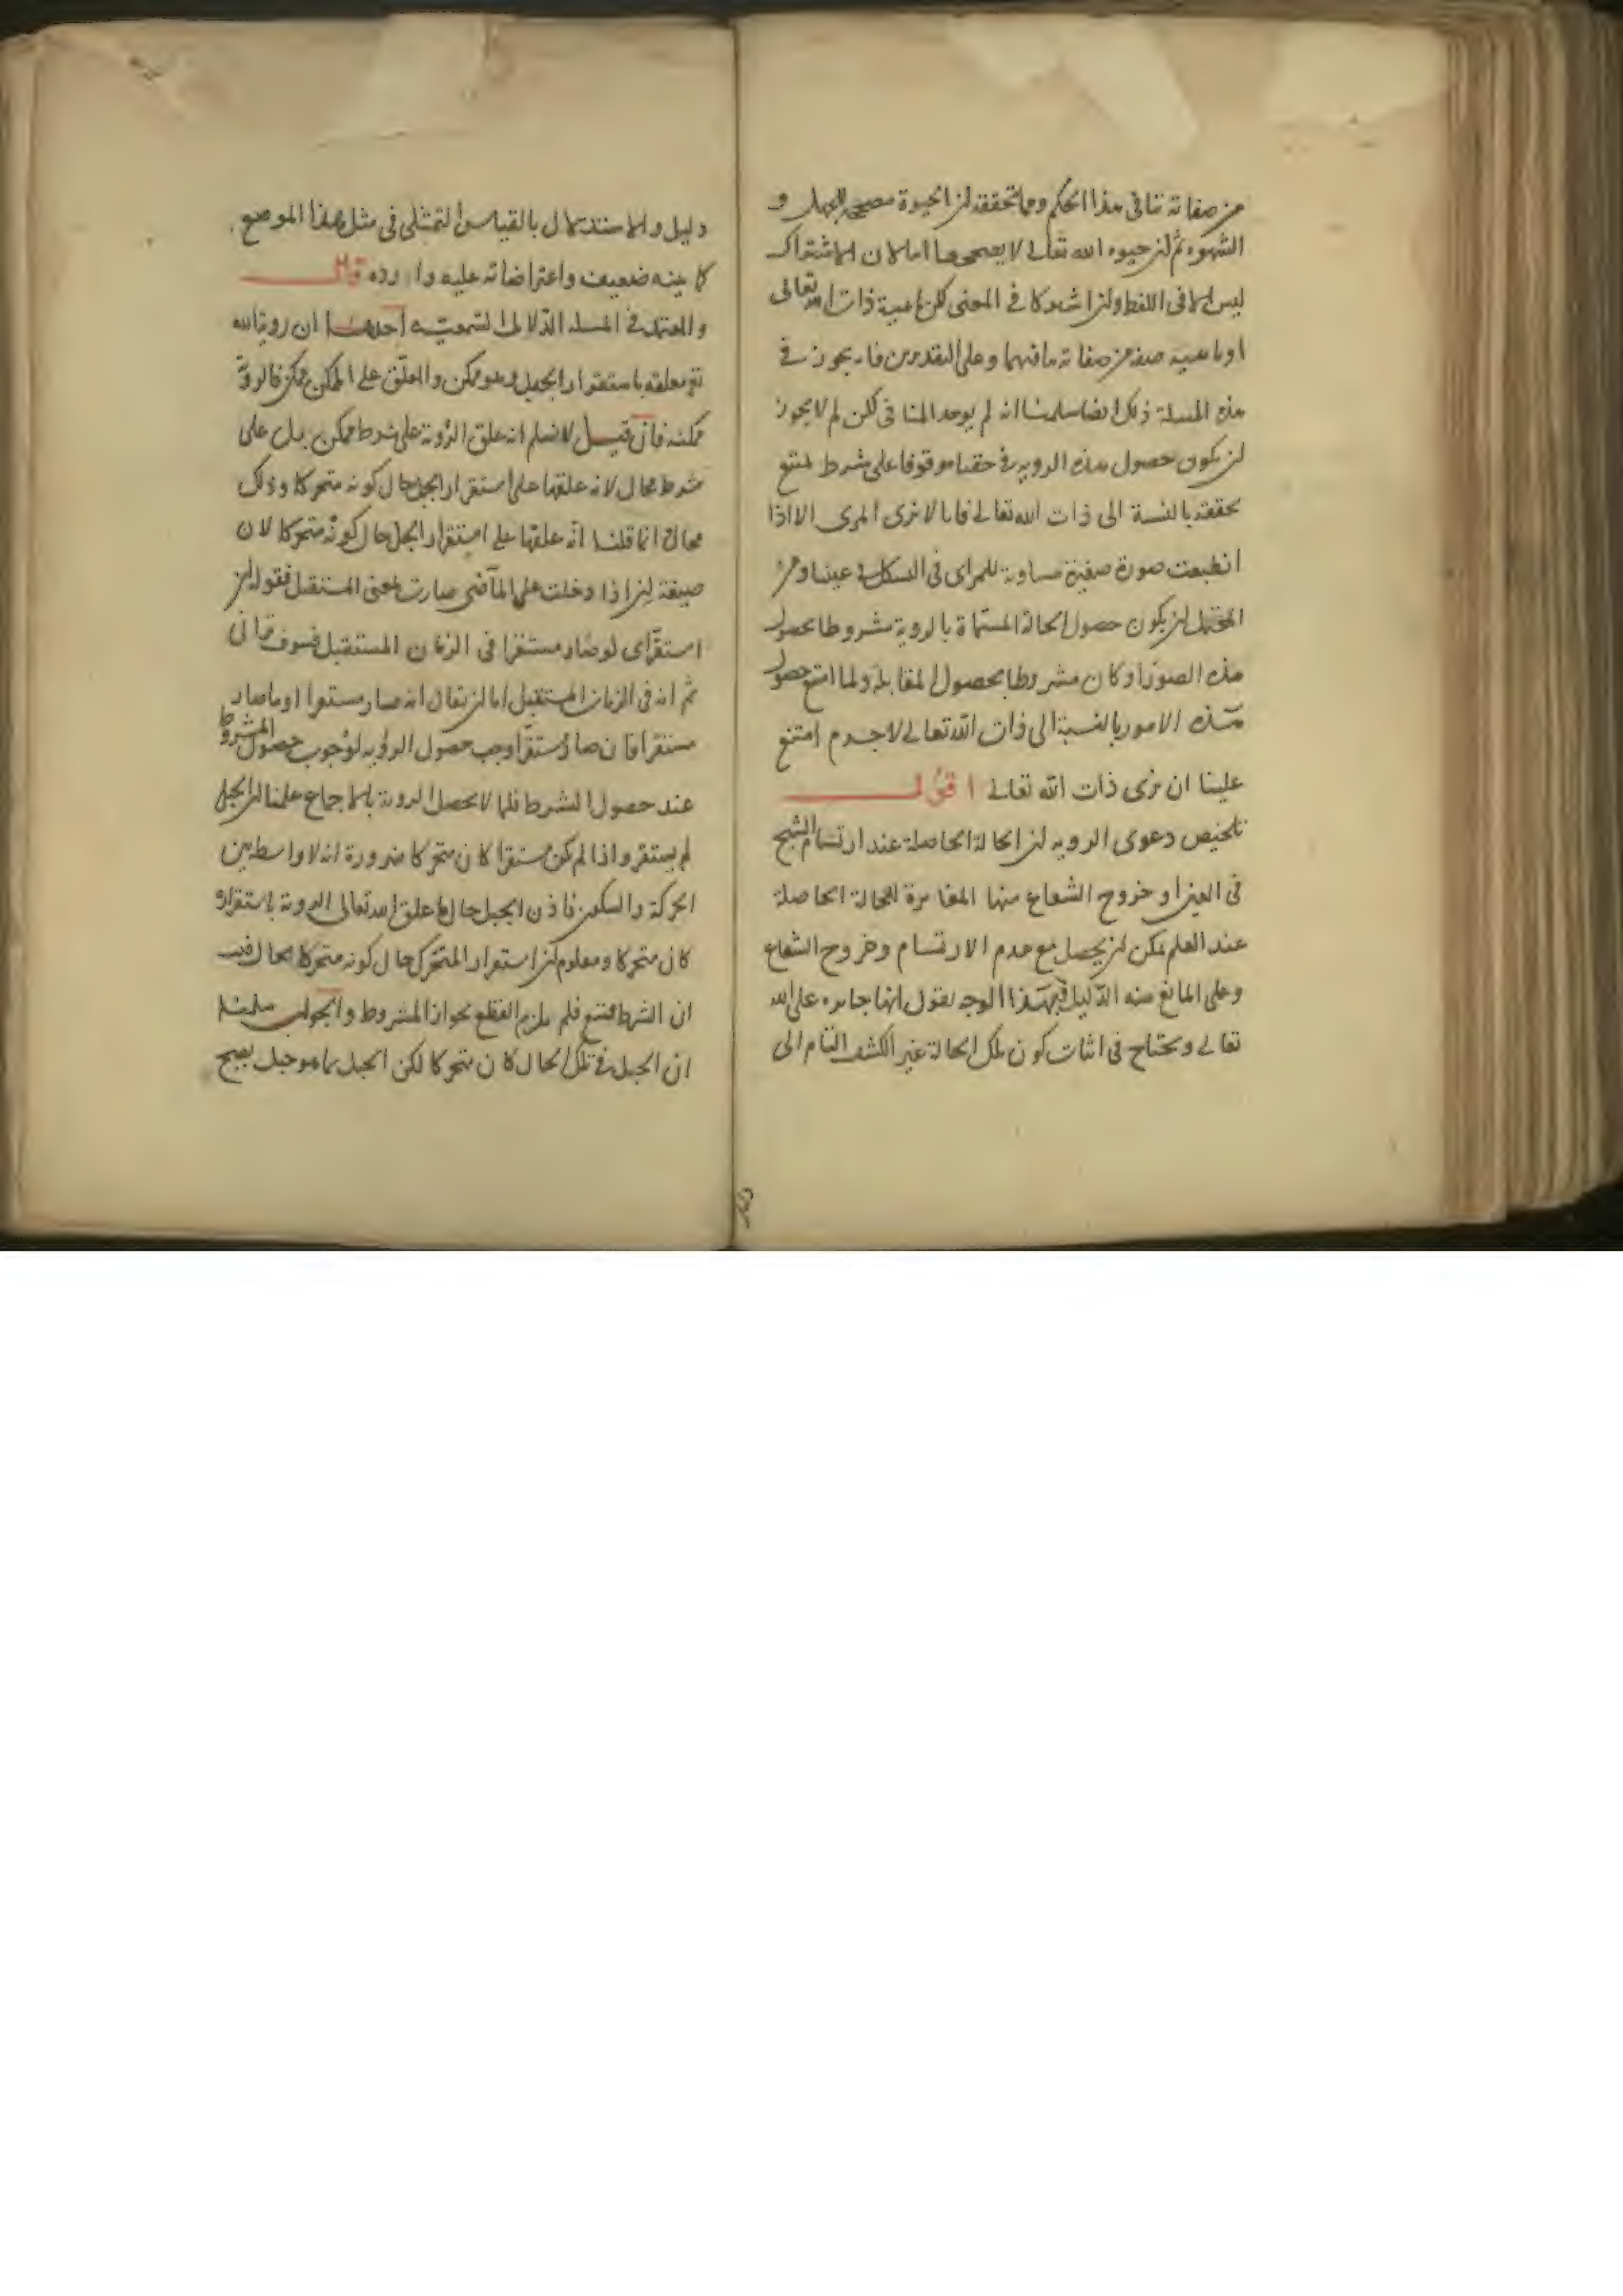 من صفاته تنافى هذا الحكم ومما تحققه ان الحيوة مصححة للجهل و
الشهوة ثم ان حيوه الله تعالى لا يصححهما اما لان الاشتراك
ليس الا فى اللفظ وان اشتركا فى المعنى لكن ماهية ذات الله تعالى
او ماهية صفة من صفاته ينافيهما وعلى التقديرين فلم يجوز فى
هذه المسلة ذلك ايضا سلمنا انه لم يوجد المنافى لكن لم لا يجوز
ان يكون حصول هذه الرويه فى حقنا موقوفا على شرط يمتنع
تحققه بالنسبة الى ذات الله تعالى فانا لا نرى المرى الا اذا
انطبعت صورة صغيرة مساوية للمراى فى الشكل فى عيننا ومن
المحتمل ان يكون حصول الحالة المسماة بالروية مشروطا بحصول
هذه الصورة او كان مشروطا بحصول المقابلة ولما امتنع حصول
هذه الامور بالنسبة الى ذات الله تعالى لا جرم امتنع
علينا ان نرى ذات الله تعالى اقول
تلخيص دعوى الرويه ان الحالة الحاصلة عند ارتسام الشبح
فى العين او خروج الشعاع منها المغايرة للحالة الحاصلة
عند العلم يمكن ان يحصل مع عدم الارتسام وخروج الشعاع
وعلى المانع منه الدليل فبهذا الوجه نقول انها جايزه على الله
تعالى ويحتاج فى اثبات كون تلك الحالة غير الكشف التام الى
دليل والاستدلال بالقياس التمثيلى فى مثل هذا الموضع
كما بينه ضعيف واعتراضاته عليه وارده قال
والمعتمد فى المسلة الدلائل السمعيه احدها ان روية الله
تع معلقة باستقرار الجبل وهو ممكن والمعلق على الممكن ممكن فالروية
ممكنه فان قيل لا نسلم انه علق الروية على شرط ممكن بل على
شرط محال لانه علقها على استقرار الجبل حال كونه متحركا وذلك
محال انما قلنا انه علقها على استقرار الجبل حال كونه متحركا لان
صيغة ان اذا دخلت على الماضى صارت بمعنى المستقبل فقوله ان
استقر اى لو صار مستقرا فى الزمان المستقبل فسوف ترانى
ثم انه فى الزمان المستقبل اما ان يقال انه صار مستقرا او ما صار
مستقرا فان صار مستقرا وجب حصول الرؤيه لوجوب حصول المشروط
عند حصول الشرط فلما لا يحصل الروية بالاجماع علمنا ان الجبل
لم يستقر واذا لم يكن مستقرا كان متحركا ضرورة انه لا واسطة بين
الحركة والسكون فاذن الجبل حال ما علق الله تعالى الروية باستقراره
كان متحركا ومعلوم ان استقرار المتحرك حال كونه متحركا محال فثبت
ان الشرط ممتنع فلم يلزم القطع بجواز المشروط والجواب سلمنا
ان الجبل فى تلك الحال كان متحركا لكن الجبل بما هو جبل يصح